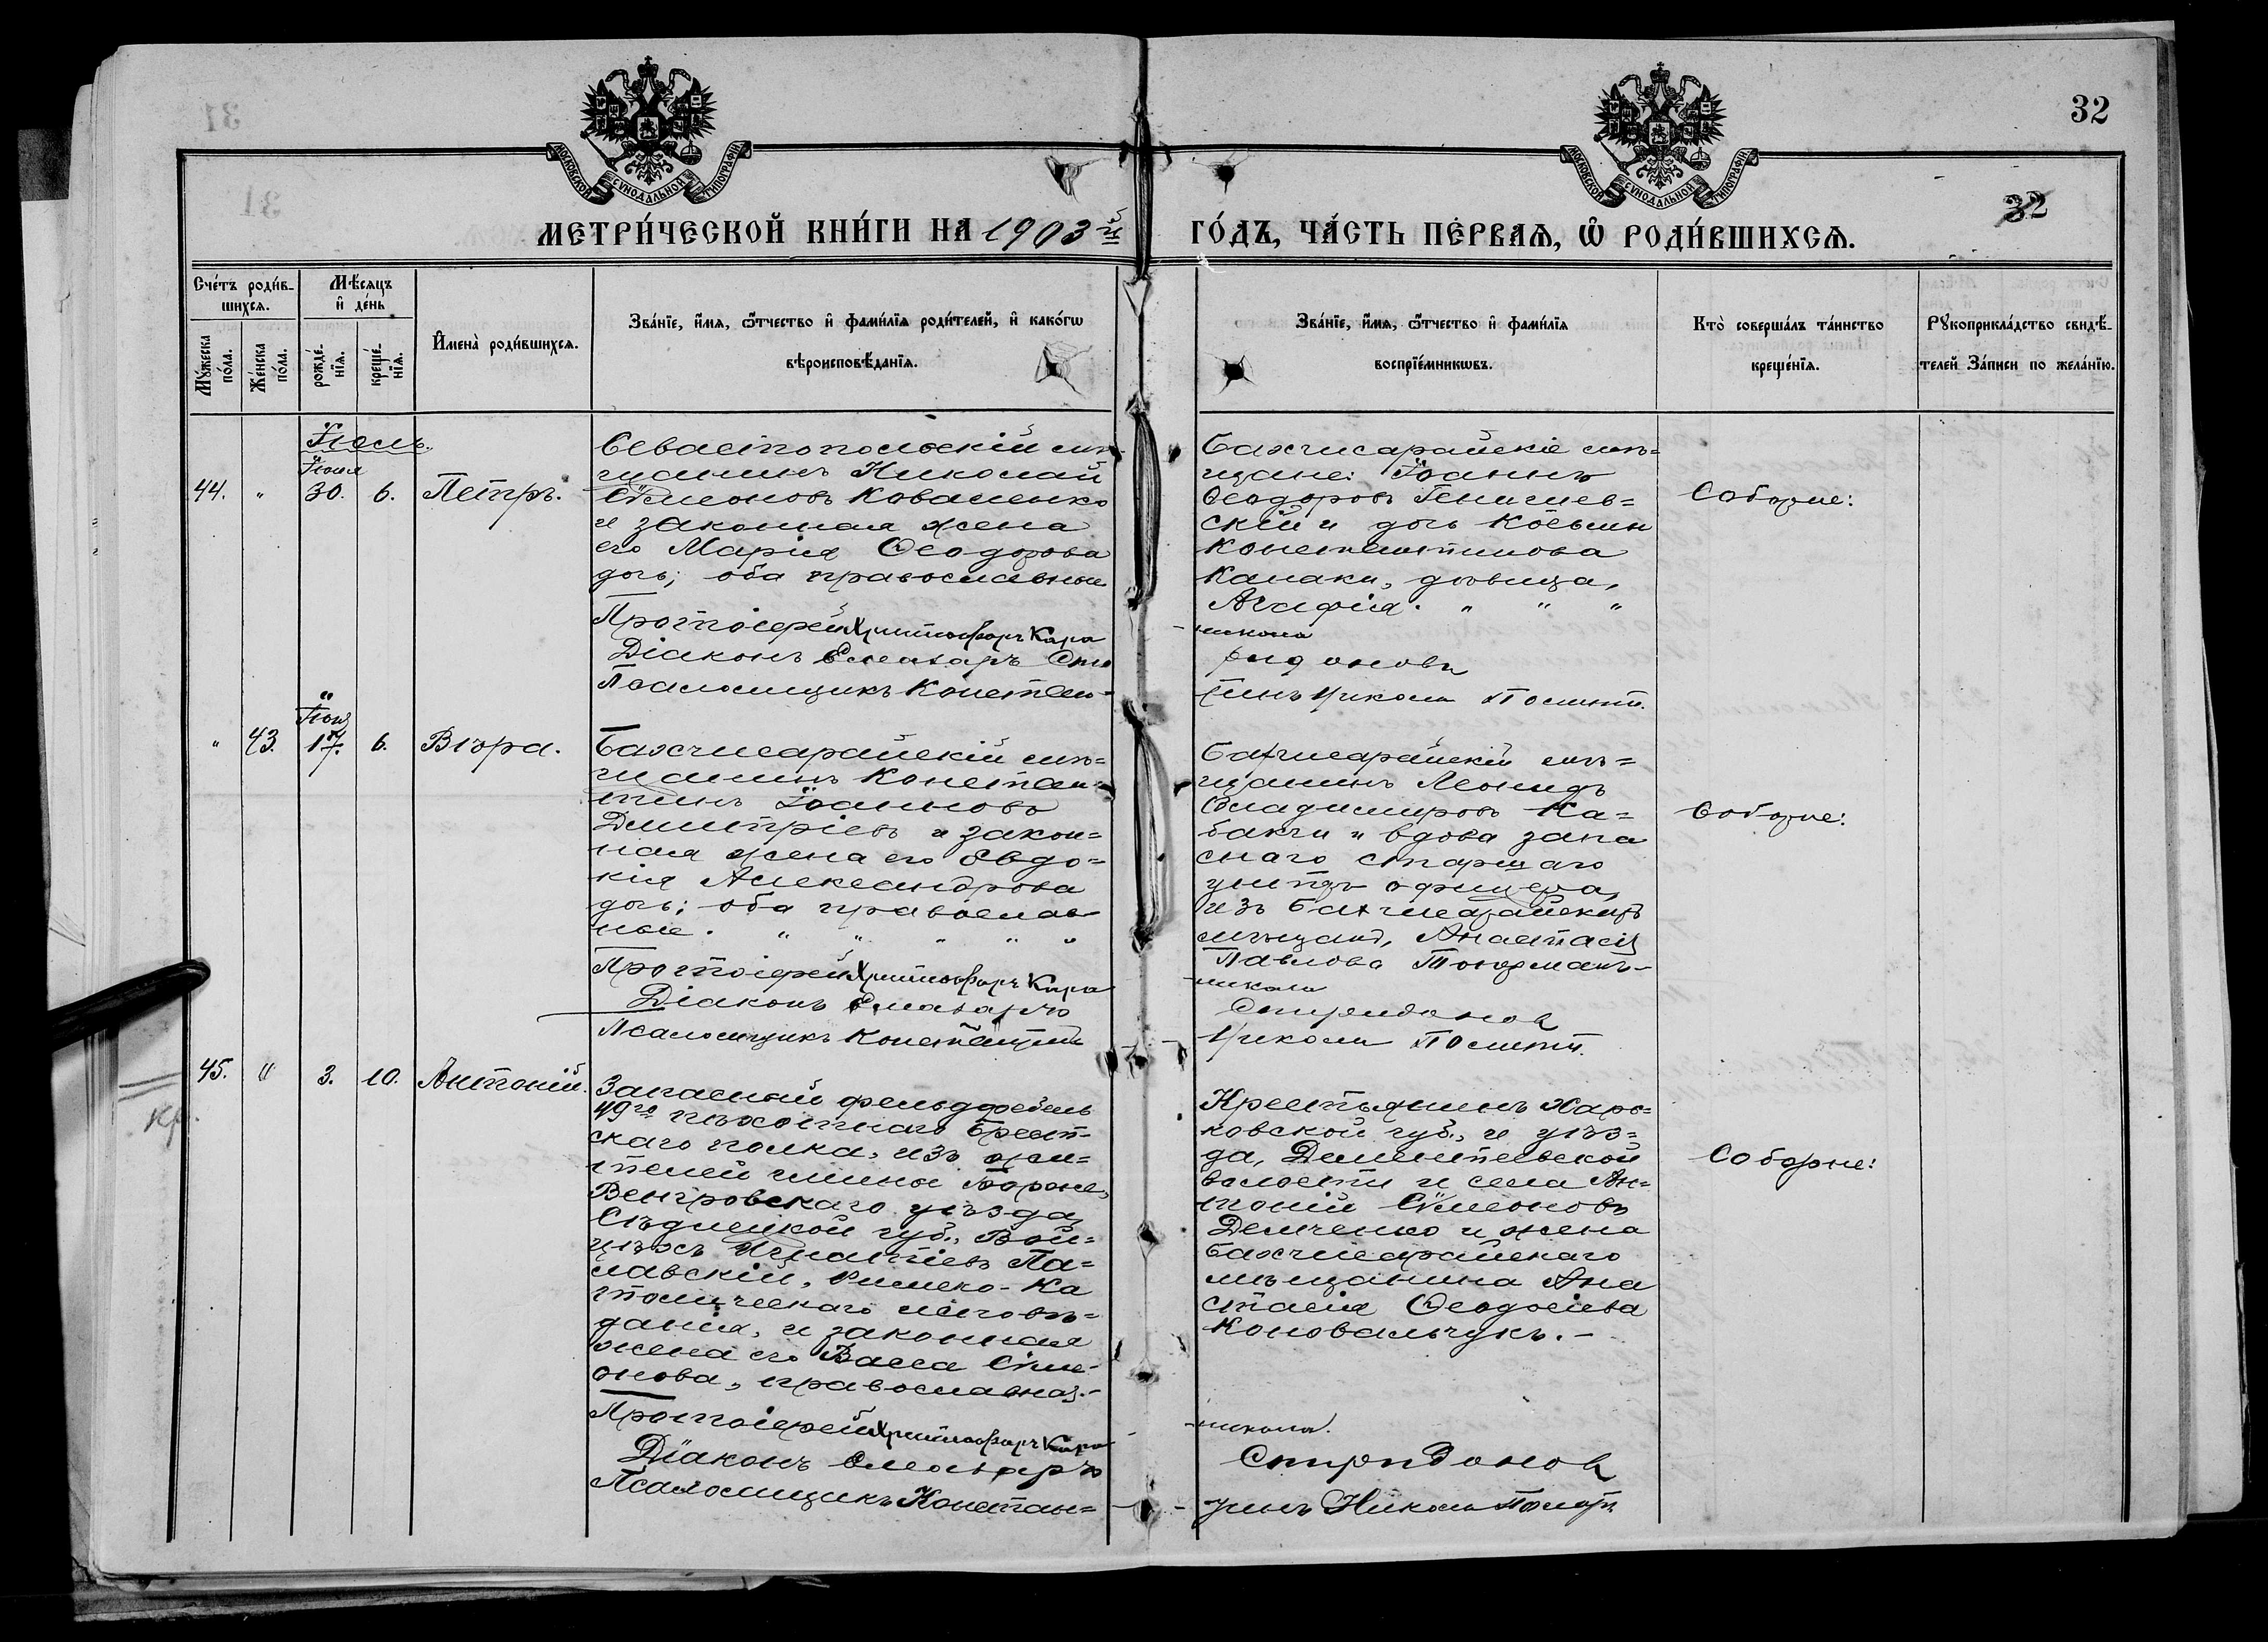 32
МОСКОВСКОЙ СѴНОДАЛЬНОЙ ТИПОГРАФІИ
МОСКОВСКОЙ СѴНОДАЛЬНОЙ ТИПОГРАФІИ
32
МЕТРИ́ЧЕСКОЙ КНИ́ГИ НА 1903й ГО́ДЪ, ЧА́СТЬ ПЕ́РВАѦ, Ѡ РОДИ́ВШИХСѦ.
Сче́тъ роди́в-
шихсѧ.
Мѣ́сѧцъ
и де́нь
Му́жеска
по́ла.
Же́нска
по́ла.
рожде́-
нїѧ.
креще́-
нїѧ.
Имена̀ роди́вшихсѧ.
Зва́нїе, и́мѧ, ѻ́тчество и фами́лїѧ роди́телей, и како́гѡ
вѣроисповѣ́данїѧ.
Зва́нїе, и́мѧ, ѻ́тчество и фами́лїѧ
воспрїе́мникѡвъ.
Кто̀ соверша́лъ та́инство
креще́нїѧ.
Рꙋкоприкла́дство свидѣ́-
телей За́писи по жела́нїю.
Іюль.
Іюня
44. " 30. 6. Петръ.
Севастопольскій мѣ-
щанинъ Николай
Сѷмеоновъ Коваленко
и законная жена
его Марія Ѳеодорова
дочь; оба православные
Протоіерей Христофоръ Кара
Діаконъ Елеазаръ Спи
Псаломщикъ Констан-
Бахчисарайскіе мѣ=
щане: Іоаннъ
Ѳеодоровъ Геничев=
скій и дочь Козьмы
Константинова
Канаки, дѣвица,
Агафія. " " "
-никола
ридоновъ
тинъ Никола
Соборне:
Іюня
" 43. 17. 6. Вѣра.
Бахчисарайскій мѣ=
щанинъ Констан-
тинъ Іоанновъ
Димитріевъ и закон=
ная жена его Евдо=
кія Александрова
дочь; оба православ
ные. " " " " "
Протоіерей Христофоръ Кара
Діаконъ Елеазаръ
Псаломщикъ Константинъ
Бахчисарайскій мѣ=
щанинъ Леонидъ
Владимировъ Ка=
бакчи и вдова запа
снаго старшаго
унтеръ офицера,
изъ Бахчисарайскихъ
мѣщанъ, Анастасія
Павлова
-никола
Спиридонов
Никола
Соборне:
45. " 3. 10. Антоній.
Запасный фельдфебель
49го пѣхотнаго Брест-
скаго полка, изъ жи=
телей гмины
Венгровскаго уѣзда
Сѣдлецкой губ., Вой=
цѣхъ Игнатіевъ Па=
лавскій, Римско-Ка
толическаго исповѣ=
данія, и законная
жена его Васса Сѷме-
онова, православная.-
Протоіерей Христофоръ Кара
Діаконъ Елеазаръ
Псаломщикъ Констан=
Крестьянинъ Харь=
ковской губ., и уѣз=
да, Дементеевской
волости и села Ан=
тоній Сѷмеоновъ
Демченко и жена
Бахчисарайскаго
мѣщанина Ана
стасія Ѳеодосіева
Коновальчукъ.-
-никола.
Спиридонов
тинъ Никола
Соборне:
кр.